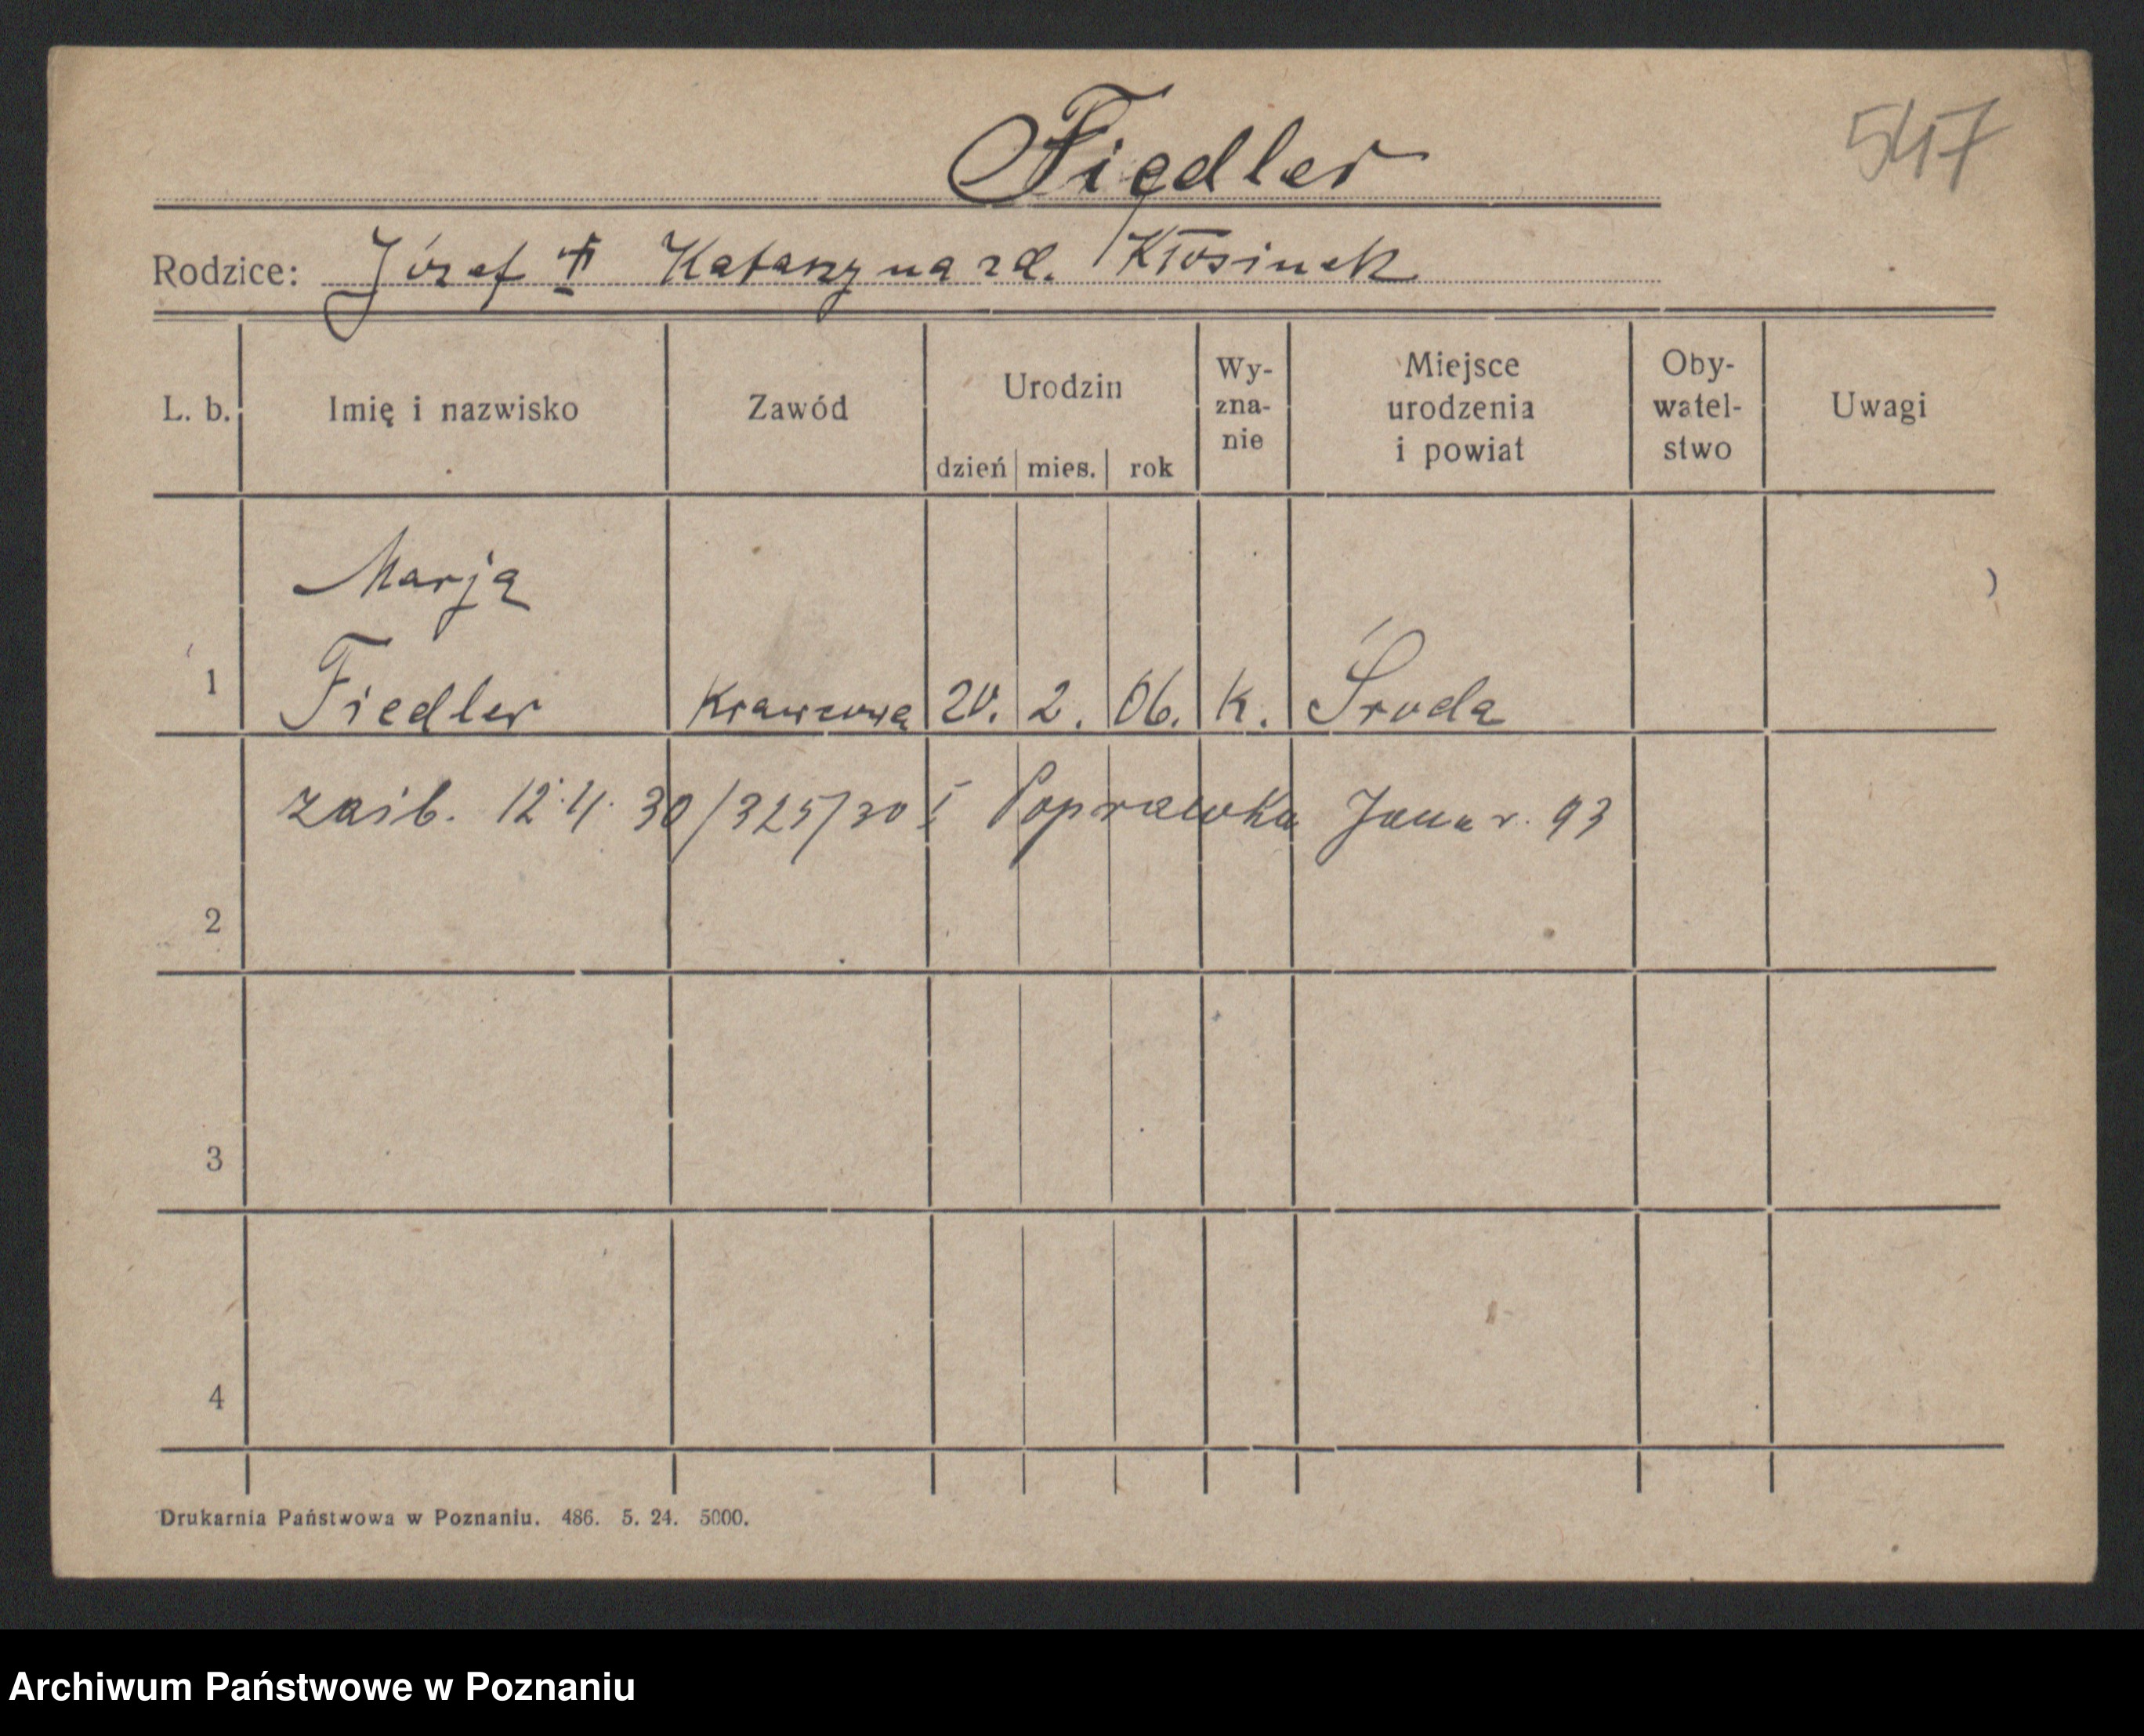 Fiedler
547
Rodzice: Józef Katarzyna zd. Kłosinek
L. b.
Imię i nazwisko
Zawód
Urodzin
dzień mies. rok
Wy-
zna-
nie
Miejsce
urodzenia
i powiat
Oby-
watel-
stwo
Uwagi
Marja
1 Fiedler Krawcowa 20. 2. 06. k. Środa
30/325/30 I Poprawka 93
2
3
4
Drukarnia Państwowa w Poznaniu. 486. 5. 24. 5000.
Archiwum Państwowe w Poznaniu